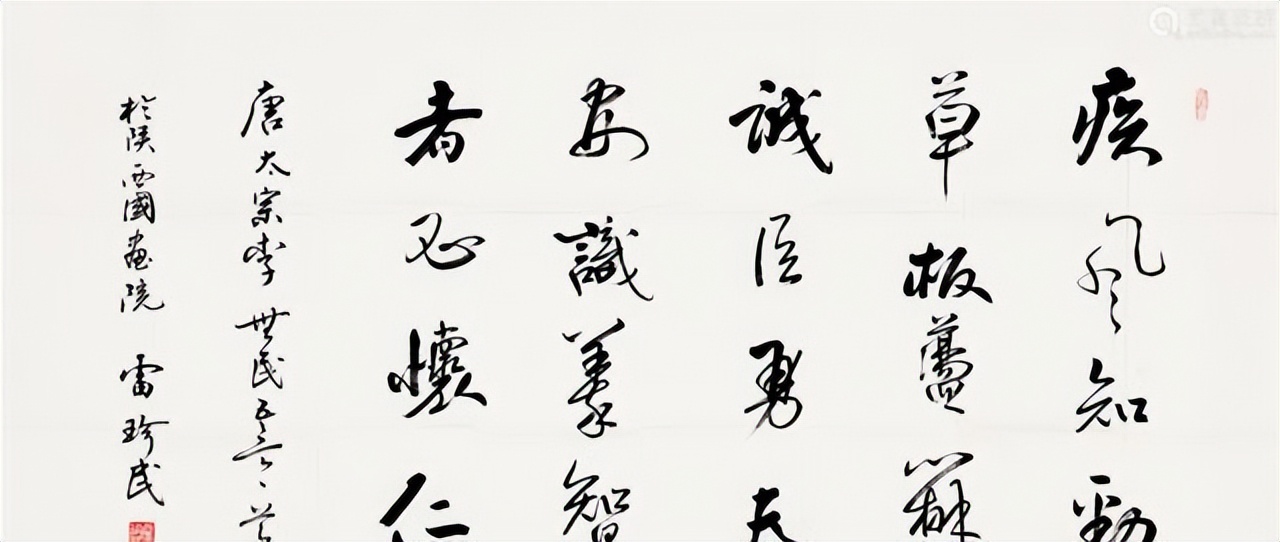 疾風知勁
草板蕩
誠臣勇夫
安識義智
者必懷仁
唐太宗李世民五言
於陝西國畫院 雷珍民